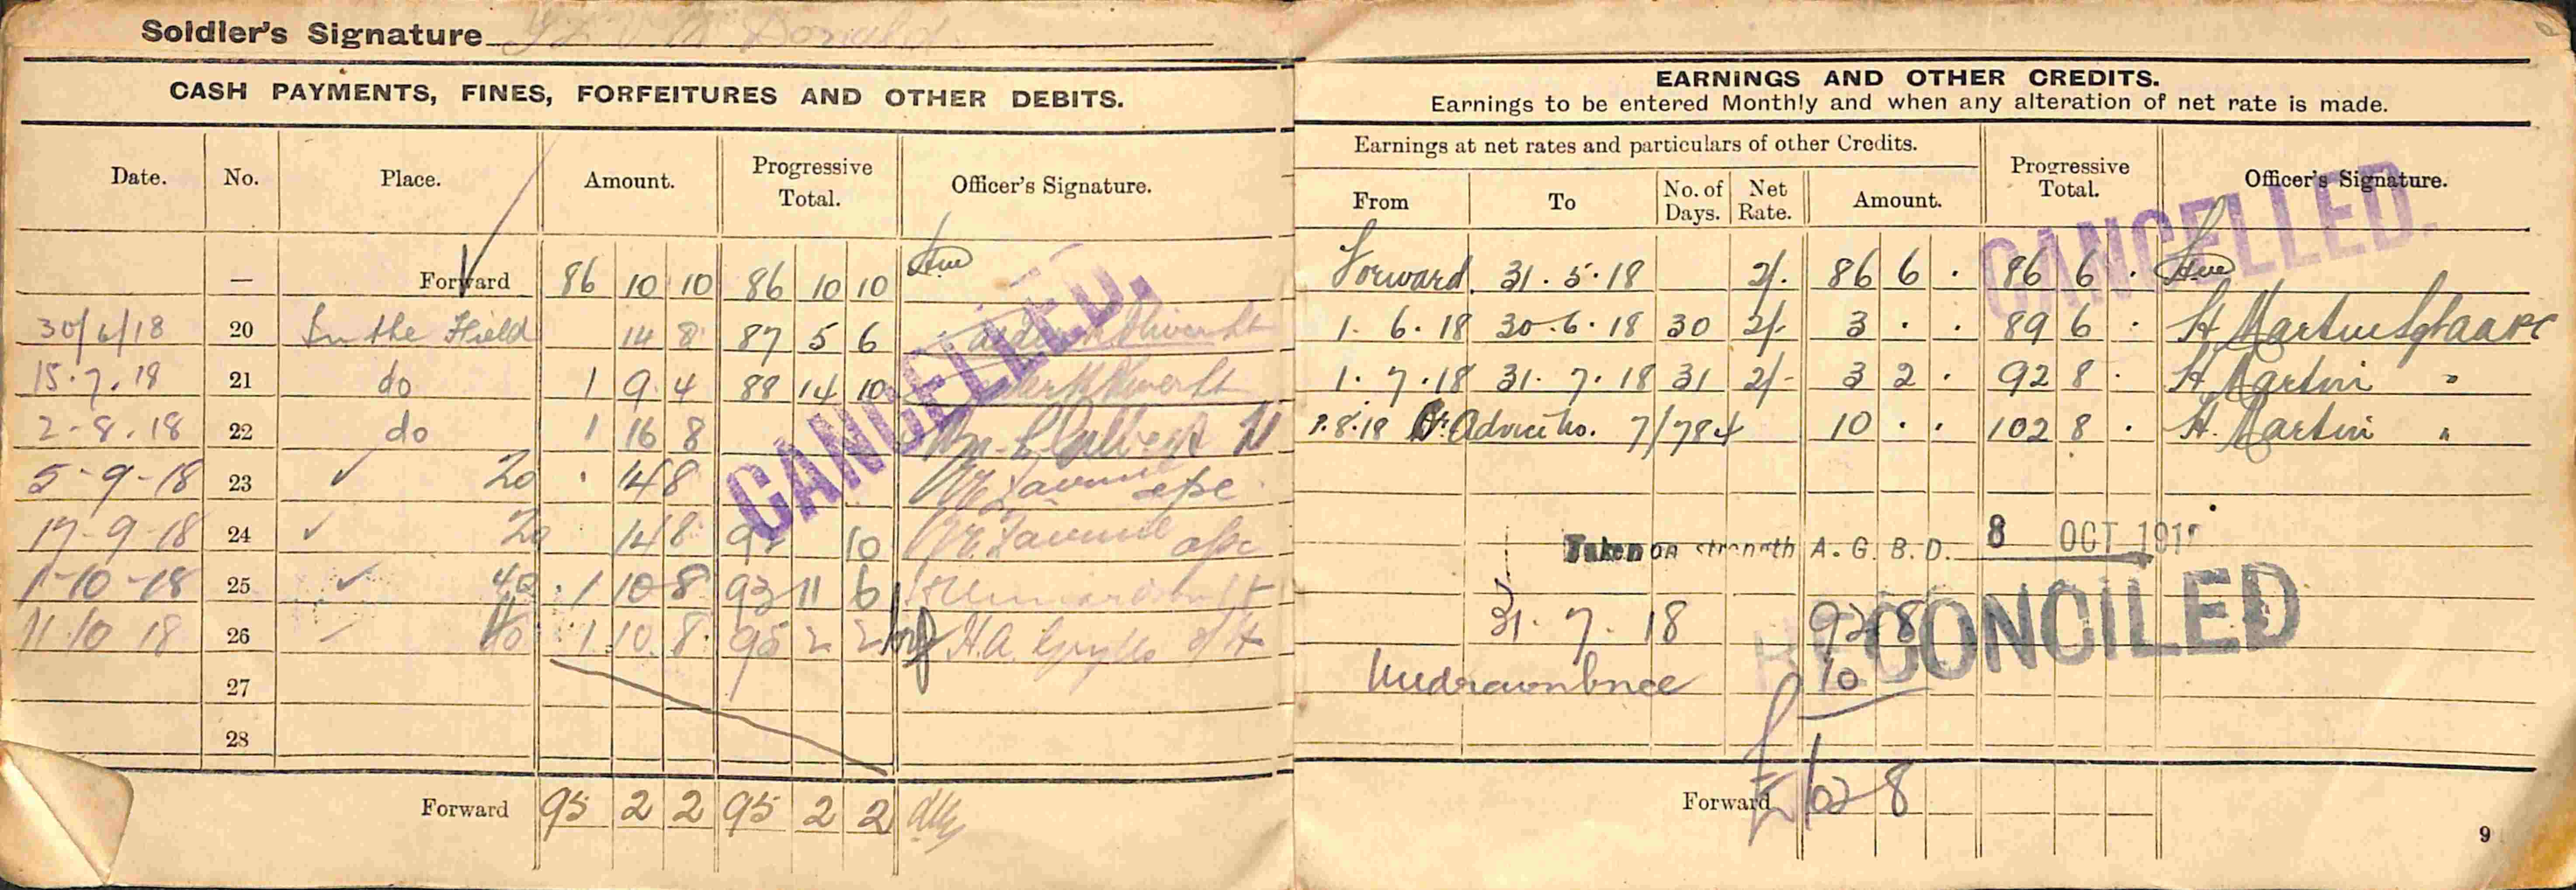 Soldier's Signature McDonald
CASH PAYMENTS, FINES, FORFEITURES AND OTHER DEBITS.
Date. No. Place. Amount. Progressive Total. Officer's Signature.
— Forward 86 10 10 86 10 10
30/6/18 20 In the Field 14 8 87 5 6
15.7.18 21 do 1 9 4 88 14 10
2-8.18 22 do 1 16 8
5-9-18 23 ✓ 20 14 8
17-9-18 24 ✓ 20 14 8 10
1-10-18 25 ✓ 40 1 10 8 93 11 6
11.10 18 26 40 1 10 8 95 2 2 H.A.
27
28
Forward 95 2 2 95 2 2
CANCELLED.
EARNINGS AND OTHER CREDITS.
Earnings to be entered Monthly and when any alteration of net rate is made.
Earnings at net rates and particulars of other Credits. Progressive Total. Officer's Signature.
From To No. of Days. Net Rate. Amount.
CANCELLED.
Forward 31.5.18 2/. 86 6 . 86 6 .
1.6.18 30.6.18 30 2/- 3 . . 89 6 . H Martin Sgt
1.7.18 31.7.18 31 2/- 3 2 . 92 8 . H Martin "
Advice No. 7/784 10 . . 102 8 . H. Martin "
Taken on strength A.G.B.D. 8 OCT 191
31.7.18 92 8
RECONCILED
10
Forward £102 8
9